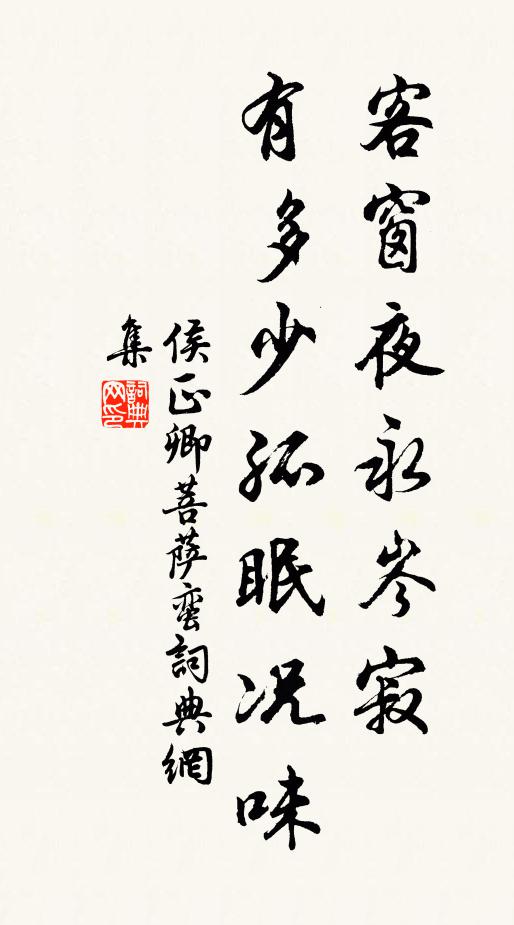 客窗夜永岑寂
有多少孤眠况味
侯正卿菩萨蛮詞典網
集
詞典网印